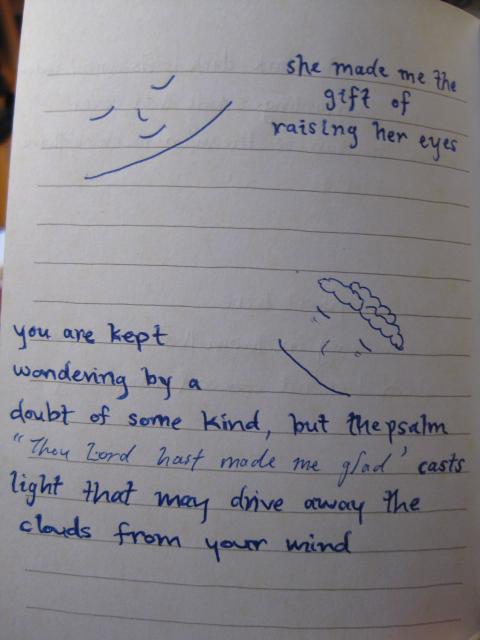 she made me the
gift of
raising her eyes
you are kept
wondering by a
doubt of some kind, but the psalm
"Thou Lord hast made me glad" casts
light that may drive away the
clouds from your mind